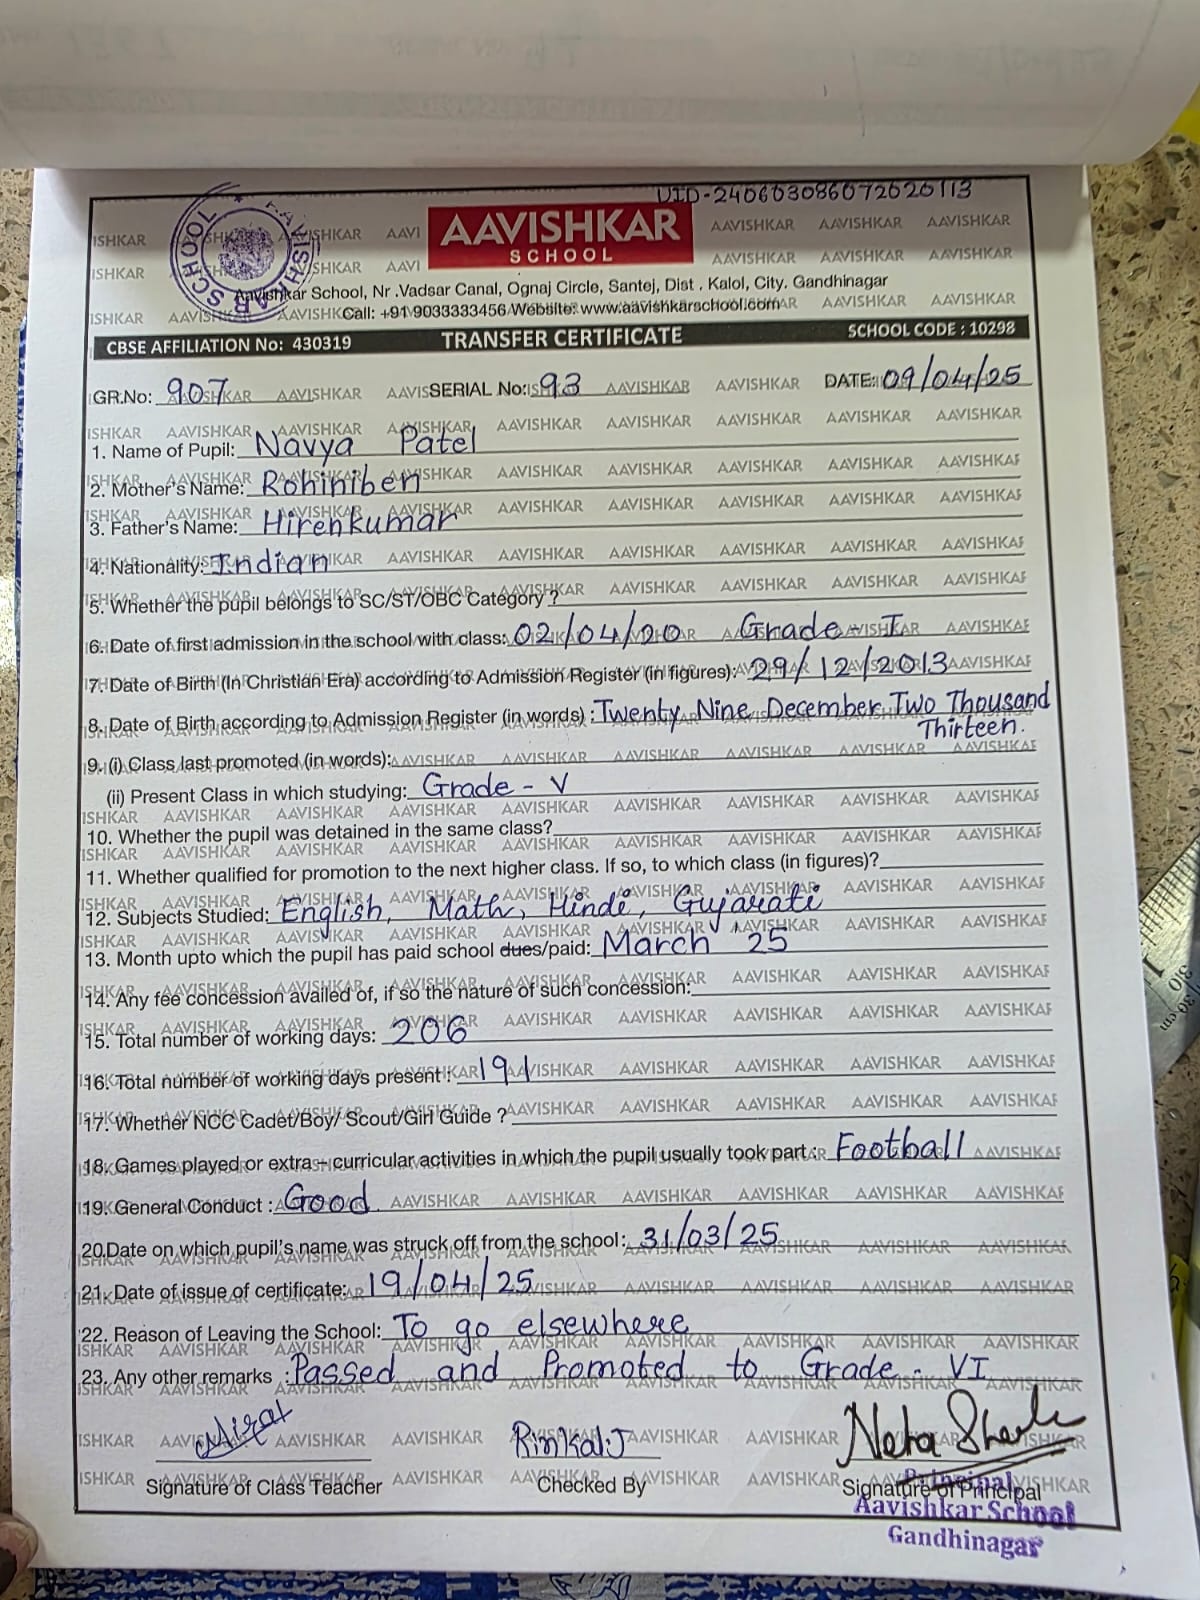 UID-240603086072020113
AAVISHKAR
SCHOOL
AAVISHKAR SCHOOL
Aavishkar School, Nr .Vadsar Canal, Ognaj Circle, Santej, Dist . Kalol, City. Gandhinagar
Call: +91 9033333456 Website: www.aavishkarschool.com
CBSE AFFILIATION No: 430319 TRANSFER CERTIFICATE SCHOOL CODE : 10298
GR.No: 907 SERIAL No: 93 DATE: 09/04/25
1. Name of Pupil: Navya Patel
2. Mother's Name: Rohiniben
3. Father's Name: Hirenkumar
4. Nationality: Indian
5. Whether the pupil belongs to SC/ST/OBC Category ?
6. Date of first admission in the school with class: 02/04/20 Grade - I
7. Date of Birth (In Christian Era) according to Admission Register (in figures): 29/12/2013
8. Date of Birth according to Admission Register (in words) : Twenty Nine December Two Thousand
Thirteen.
9. (i) Class last promoted (in words):
(ii) Present Class in which studying: Grade - V
10. Whether the pupil was detained in the same class?
11. Whether qualified for promotion to the next higher class. If so, to which class (in figures)?
12. Subjects Studied: English, Math, Hindi, Gujarati
13. Month upto which the pupil has paid school dues/paid: March '25
14. Any fee concession availed of, if so the nature of such concession:
15. Total number of working days: 206
16. Total number of working days present : 191
17. Whether NCC Cadet/Boy/ Scout/Girl Guide ?
18. Games played or extra – curricular activities in which the pupil usually took part : Football
19. General Conduct : Good
20.Date on which pupil's name was struck off from the school: 31/03/25
21. Date of issue of certificate: 19/04/25
22. Reason of Leaving the School: To go elsewhere
23. Any other remarks : Passed and Promoted to Grade - VI
Rinkal.J Neha
Signature of Class Teacher Checked By Signature of Principal
Principal
Aavishkar School
Gandhinagar